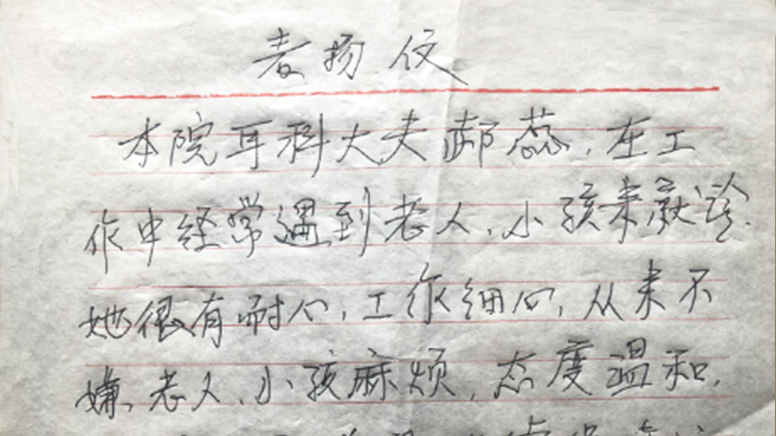 表扬信
本院耳科大夫郝蕊，在工
作中经常遇到老人、小孩来就诊.
她很有耐心，工作细心，从来不
嫌老人、小孩麻烦，态度温和，